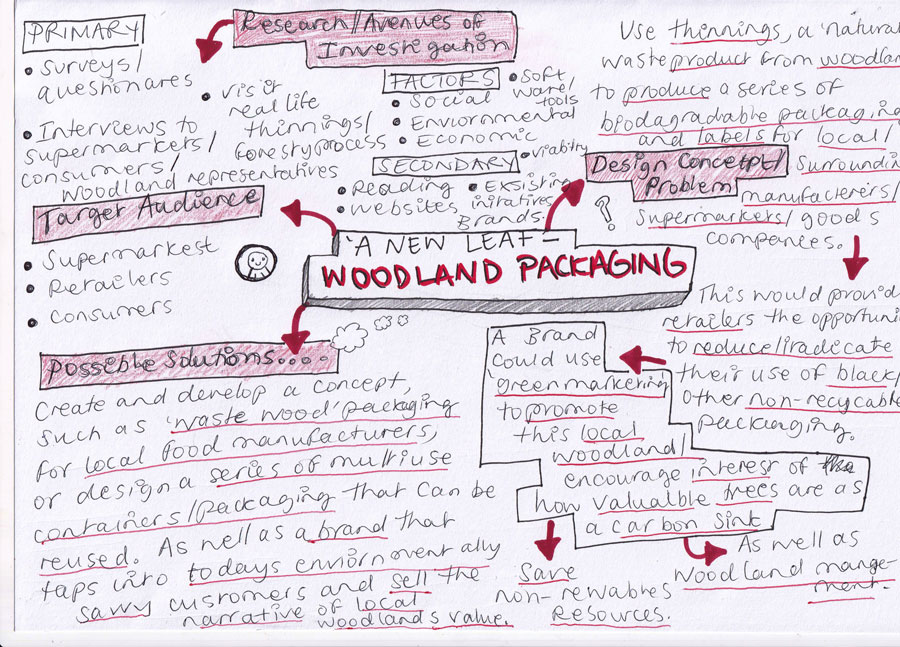 Research/Avenues of
Investigation
PRIMARY
• Surveys/
questionares
• Interviews to
supermarkets/
consumers/
woodland representatives
• Visit
real life
thinnings/
forestry process
FACTORS
• Social
• Enviornmental
• Economic
• Soft
ware/
tools
• Viability
SECONDARY
• Reading
• Websites
• Exsisting
initiatives
Brands.
Use thinnings, a natural
waste product from woodlan
to produce a series of
biodagradable packaging
and labels for local/
surroundin
manufacterers/
supermarkets/goods
companies.
Design Concetpt/
Problem
?
Target Audience
• Supermarkest
• Retrailers
• Consumers
'A NEW LEAF' –
WOODLAND PACKAGING
This would provid
retailers the opportuni
to reduce/iradicate
their use of black/
other non-recycable
packaging.
A Brand
could use
green marketing
to promote
this local
woodland/
encourage interest of
how valualble trees are as
a carbon sink
Save
non-rewables
resources.
As well as
woodland mange-
ment.
Possible Solutions....
Create and develop a concept,
such as 'waste wood' packaging
for local food manufacturers,
or design a series of multiuse
containers/packaging that can be
reused. As well as a brand that
taps into todays enviornmentally
savvy customers and sell the
narrative of local
woodlands value.